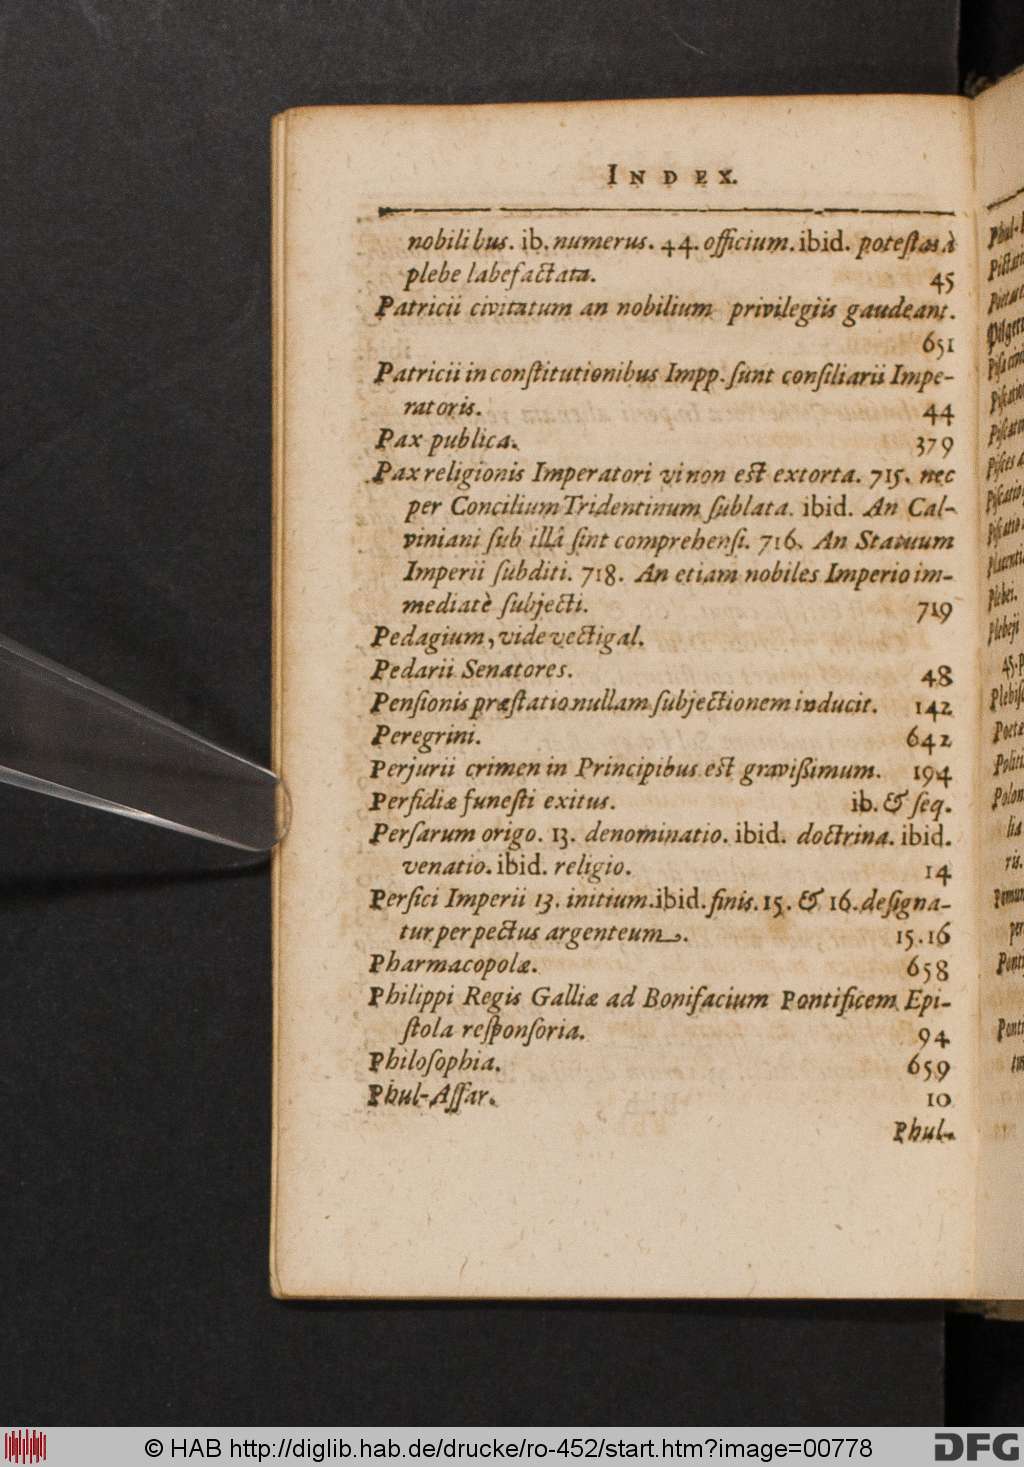 INDEX.
nobilibus. ib. numerus. 44. officium. ibid. potestas à
plebe labefactata. 45
Patricii civitatum an nobilium privilegiis gaudeant.
651
Patricii in constitutionibus Impp. sunt consiliarii Impe-
ratoris. 44
Pax publica. 379
Pax religionis Imperatori vi non est extorta. 715. nec
per Concilium Tridentinum sublata. ibid. An Cal-
viniani sub illâ sint comprehensi. 716. An Statuum
Imperii subditi. 718. An etiam nobiles Imperio im-
mediatè subjecti. 719
Pedagium, vide vectigal.
Pedarii Senatores. 48
Pensionis præstatio nullam subjectionem inducit. 142
Peregrini. 642
Perjurii crimen in Principibus est gravissimum. 194
Perfidiæ funesti exitus. ib. & seq.
Persarum origo. 13. denominatio. ibid. doctrina. ibid.
venatio. ibid. religio. 14
Persici Imperii 13. initium. ibid. finis. 15. & 16. designa-
tur per pectus argenteum. 15.16
Pharmacopolæ. 658
Philippi Regis Galliæ ad Bonifacium Pontificem Epi-
stola responsoria. 94
Philosophia. 659
Phul-Assar. 10
Phul-
© HAB http://diglib.hab.de/drucke/ro-452/start.htm?image=00778
DFG